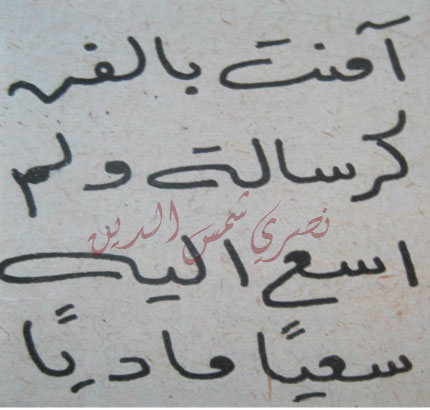 آمنت بالفن
كرسالة ولم
نصري شمس الدين
اسع اليه
سعيًا ماديًا